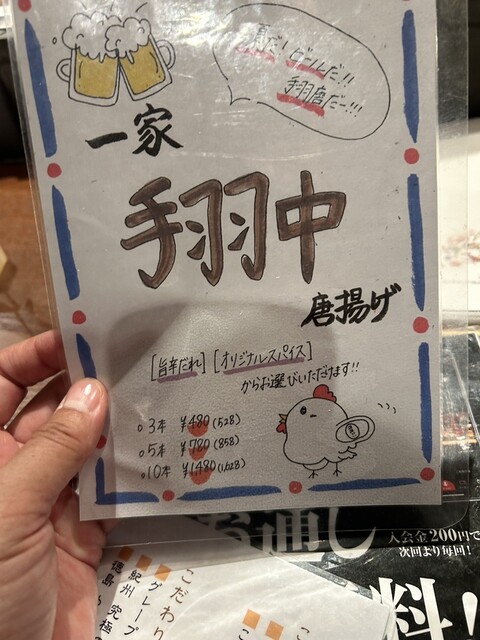 夏だ！ビールだ！！
手羽唐だー！！！
一家
手羽中
唐揚げ
[旨辛だれ] [オリジナルスパイス]
からお選びいただけます！！
○3本 ¥480 (528)
○5本 ¥780 (858)
○10本 ¥1480 (1,628)
通し
入会金200円で
次回より毎回！
料！
こだわり
グレープ
紀州
徳島
究極
こ